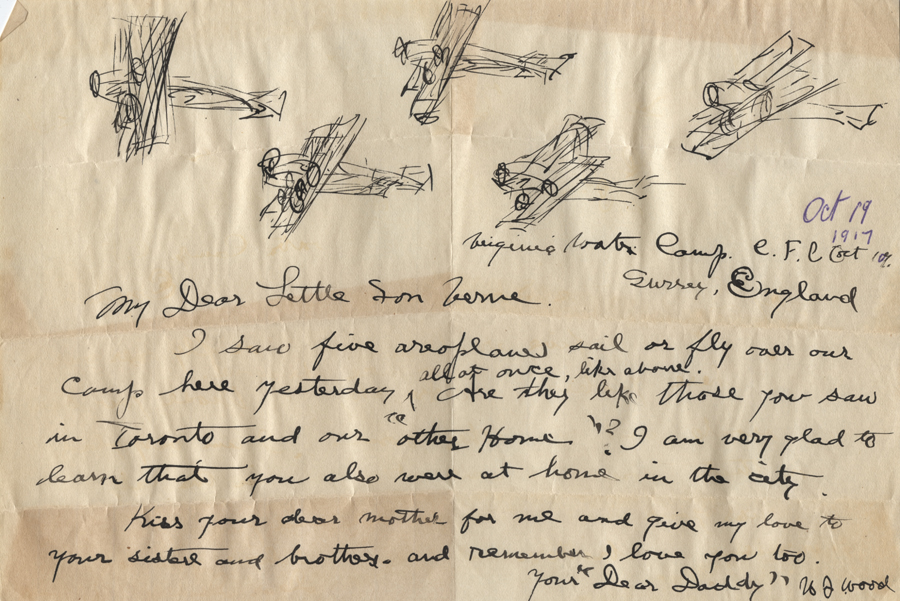 Oct 19
1917
Virginia Water Camp. C. F. C Oct 19/17.
Surrey, England
My Dear Little Son Verne.
I saw five areoplanes sail or fly over our
all at once, like above.
Camp here yesterday, Are they like those you saw
in Toronto and our "other Home"? I am very glad to
learn that you also were at home in the city.
Kiss your dear mother for me and give my love to
your sisters and brother. and remember I love you too.
Your "Dear Daddy" W J Wood